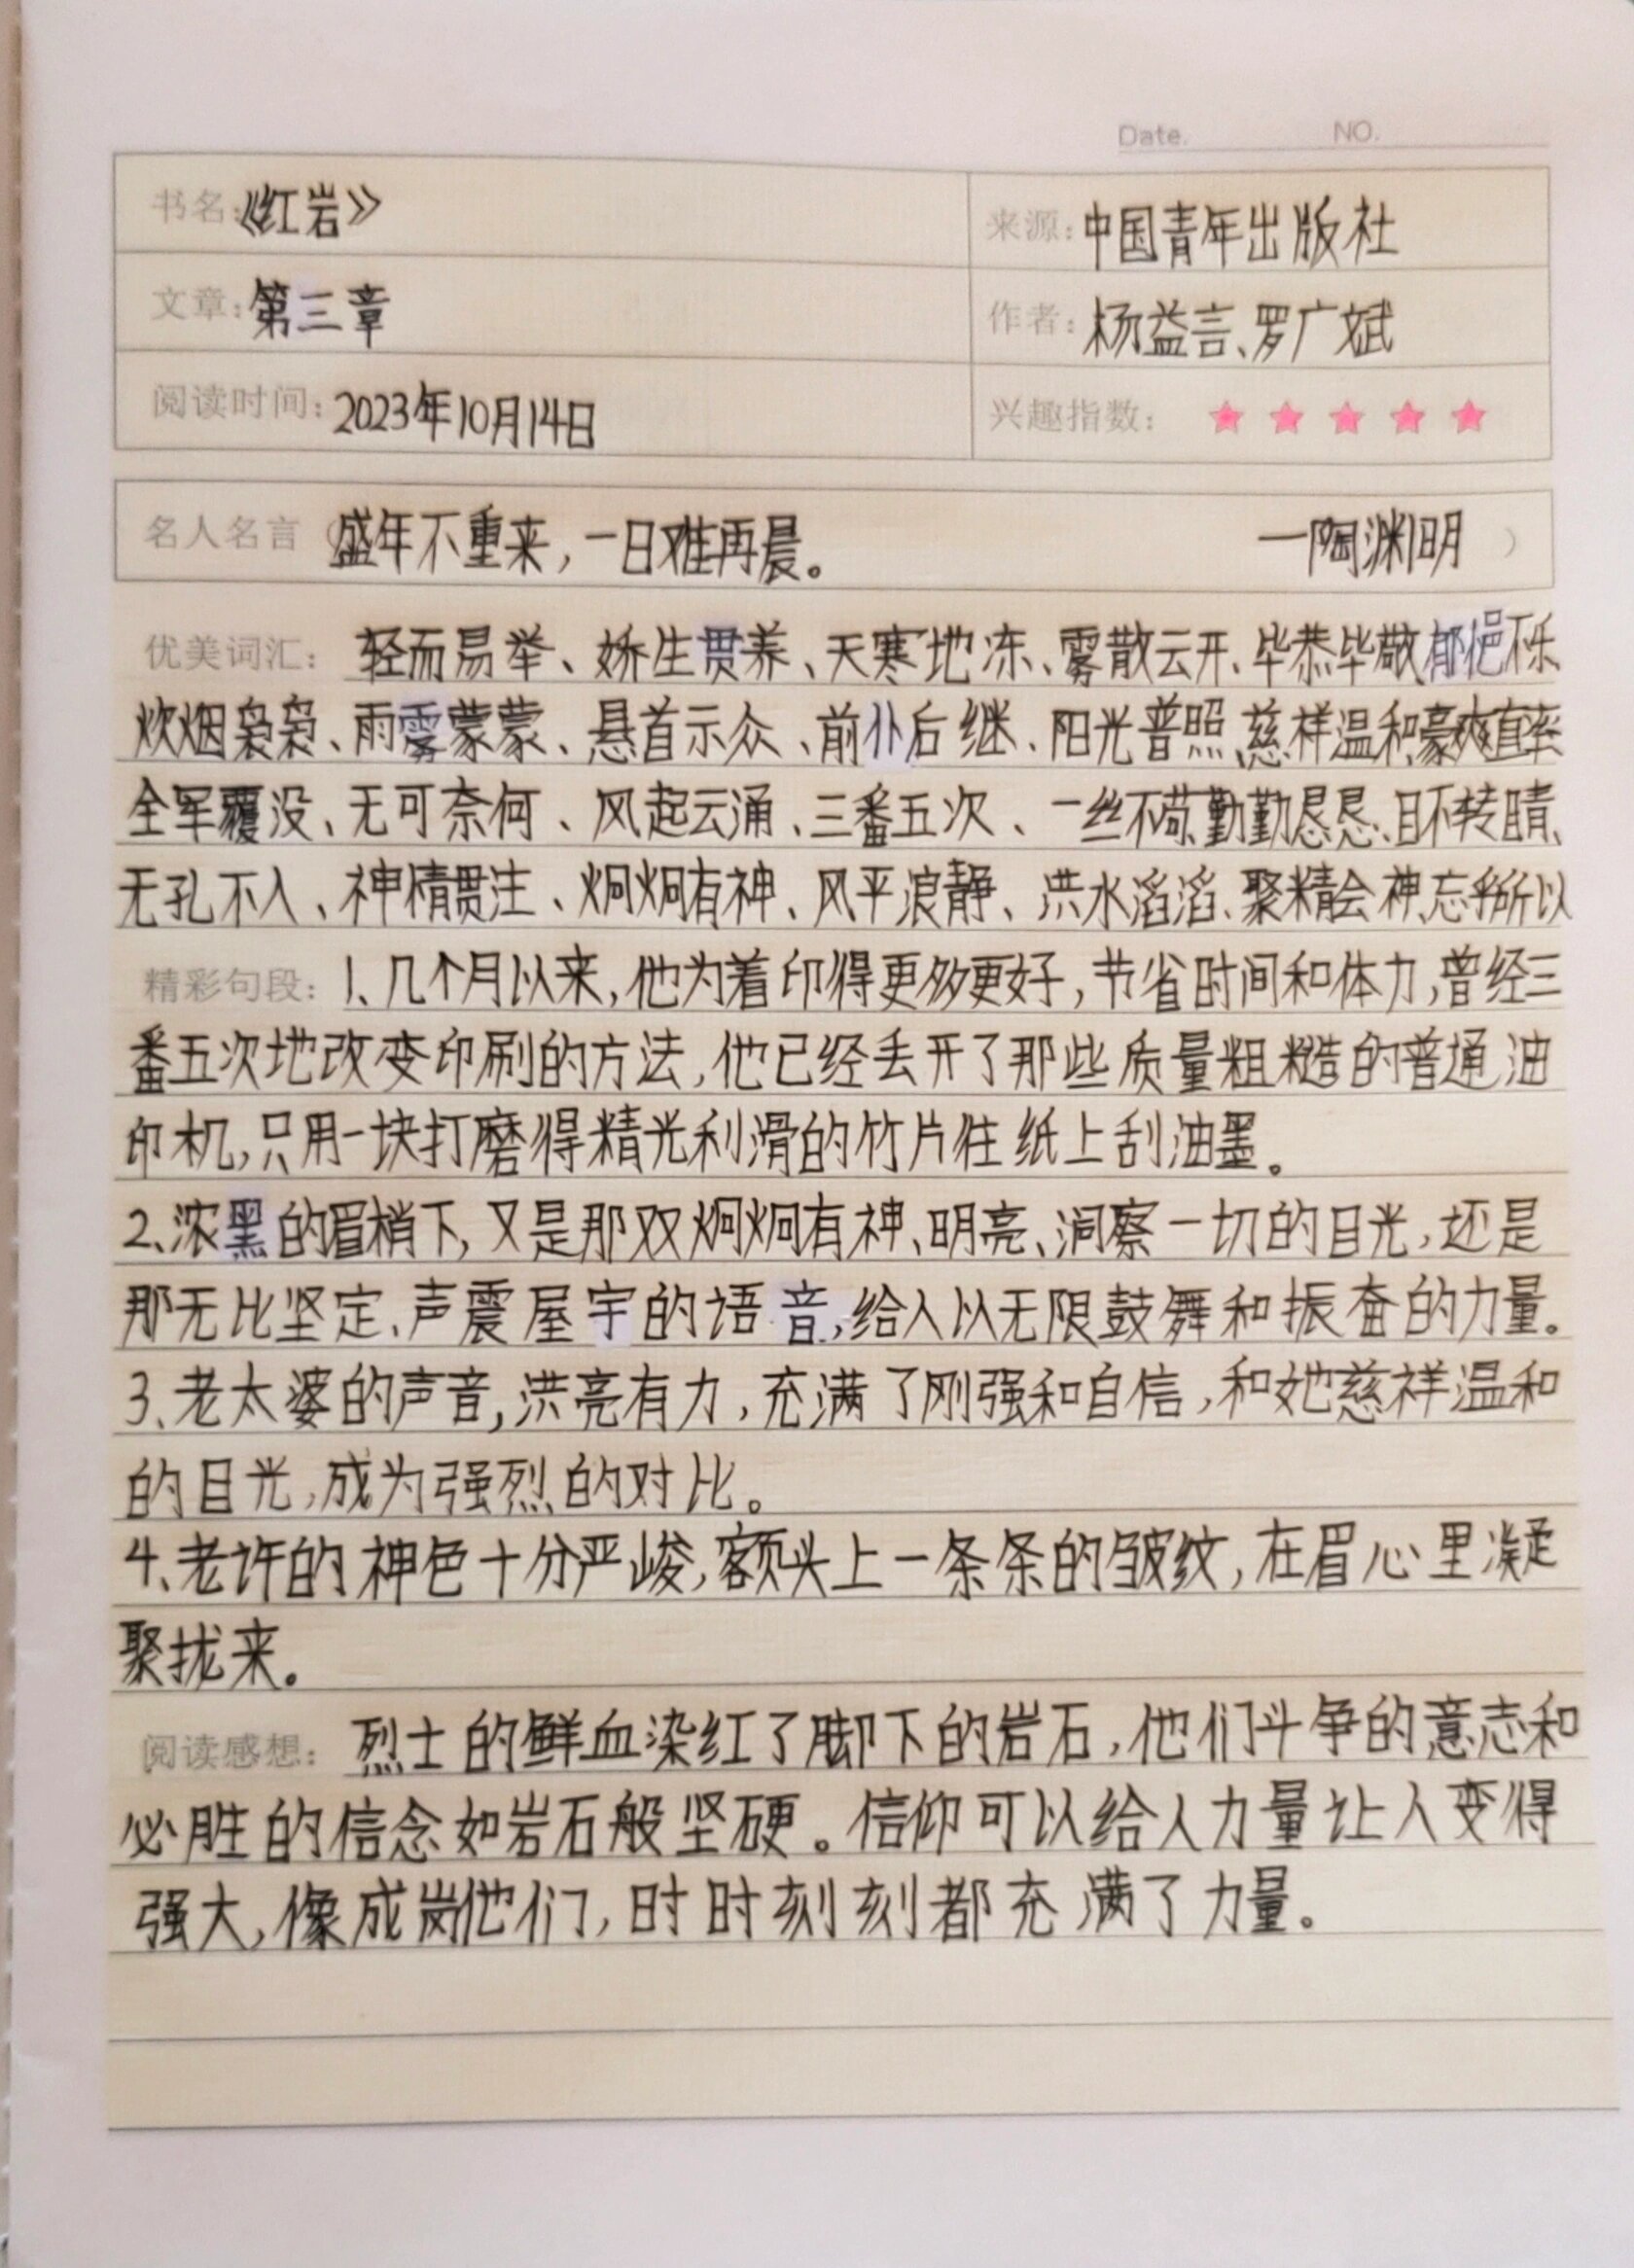 Date. NO.
书名：《红岩》 来源：中国青年出版社
文章：第三章 作者：杨益言、罗广斌
阅读时间：2023年10月14日 兴趣指数：★★★★★
名人名言（盛年不重来，一日难再晨。 —陶渊明）
优美词汇：轻而易举、娇生贯养、天寒地冻、雾散云开、毕恭毕敬、郁悒不乐
炊烟袅袅、雨雾蒙蒙、悬首示众、前仆后继、阳光普照、慈祥温和、豪爽直率
全军覆没、无可奈何、风起云涌、三番五次、一丝不苟、勤勤恳恳、目不转睛、
无孔不入、神情贯注、炯炯有神、风平浪静、洪水滔滔、聚精会神、忘乎所以
精彩句段：1、几个月以来，他为着印得更多更好，节省时间和体力，曾经三
番五次地改变印刷的方法，他已经丢开了那些质量粗糙的普通油
印机，只用一块打磨得精光利滑的竹片往纸上刮油墨。
2、浓黑的眉梢下，又是那双炯炯有神、明亮、洞察一切的目光，还是
那无比坚定、声震屋宇的语音，给人以无限鼓舞和振奋的力量。
3、老太婆的声音，洪亮有力，充满了刚强和自信，和她慈祥温和
的目光，成为强烈的对比。
4、老许的神色十分严峻，额头上一条条的皱纹，在眉心里凝
聚拢来。
阅读感想：烈士的鲜血染红了脚下的岩石，他们斗争的意志和
必胜的信念如岩石般坚硬。信仰可以给人力量让人变得
强大，像成岗他们，时时刻刻都充满了力量。